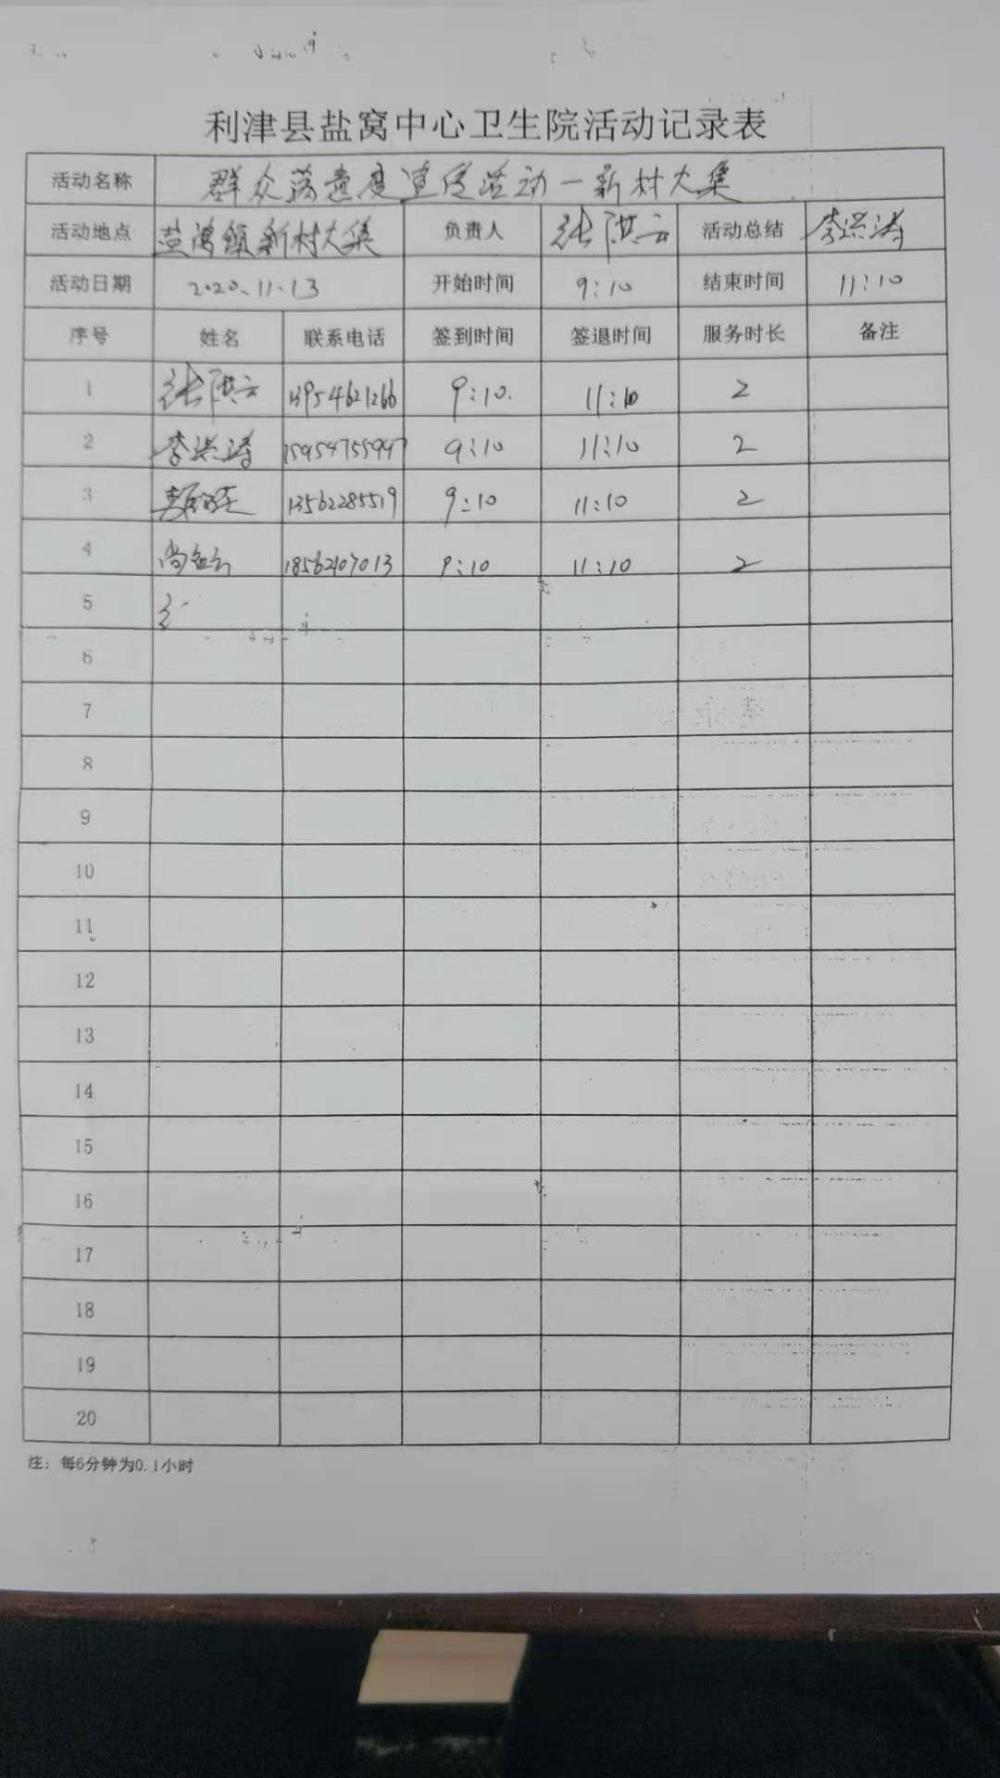 利津县盐窝中心卫生院活动记录表
活动名称 群众满意度宣传活动一新村大集
活动地点 盐窝镇新村大集 负责人 张洪云 活动总结 李洪涛
活动日期 2020.11.13 开始时间 9:10 结束时间 11:10
序号 姓名 联系电话 签到时间 签退时间 服务时长 备注
1 张洪云 13954621266 9:10. 11:10 2
2 李洪涛 15954755997 9:10 11:10 2
3 13562285519 9:10 11:10 2
4 18562107013 9:10 11:10 2
5
6
7
8
9
10
11
12
13
14
15
16
17
18
19
20
注：每6分钟为0.1小时